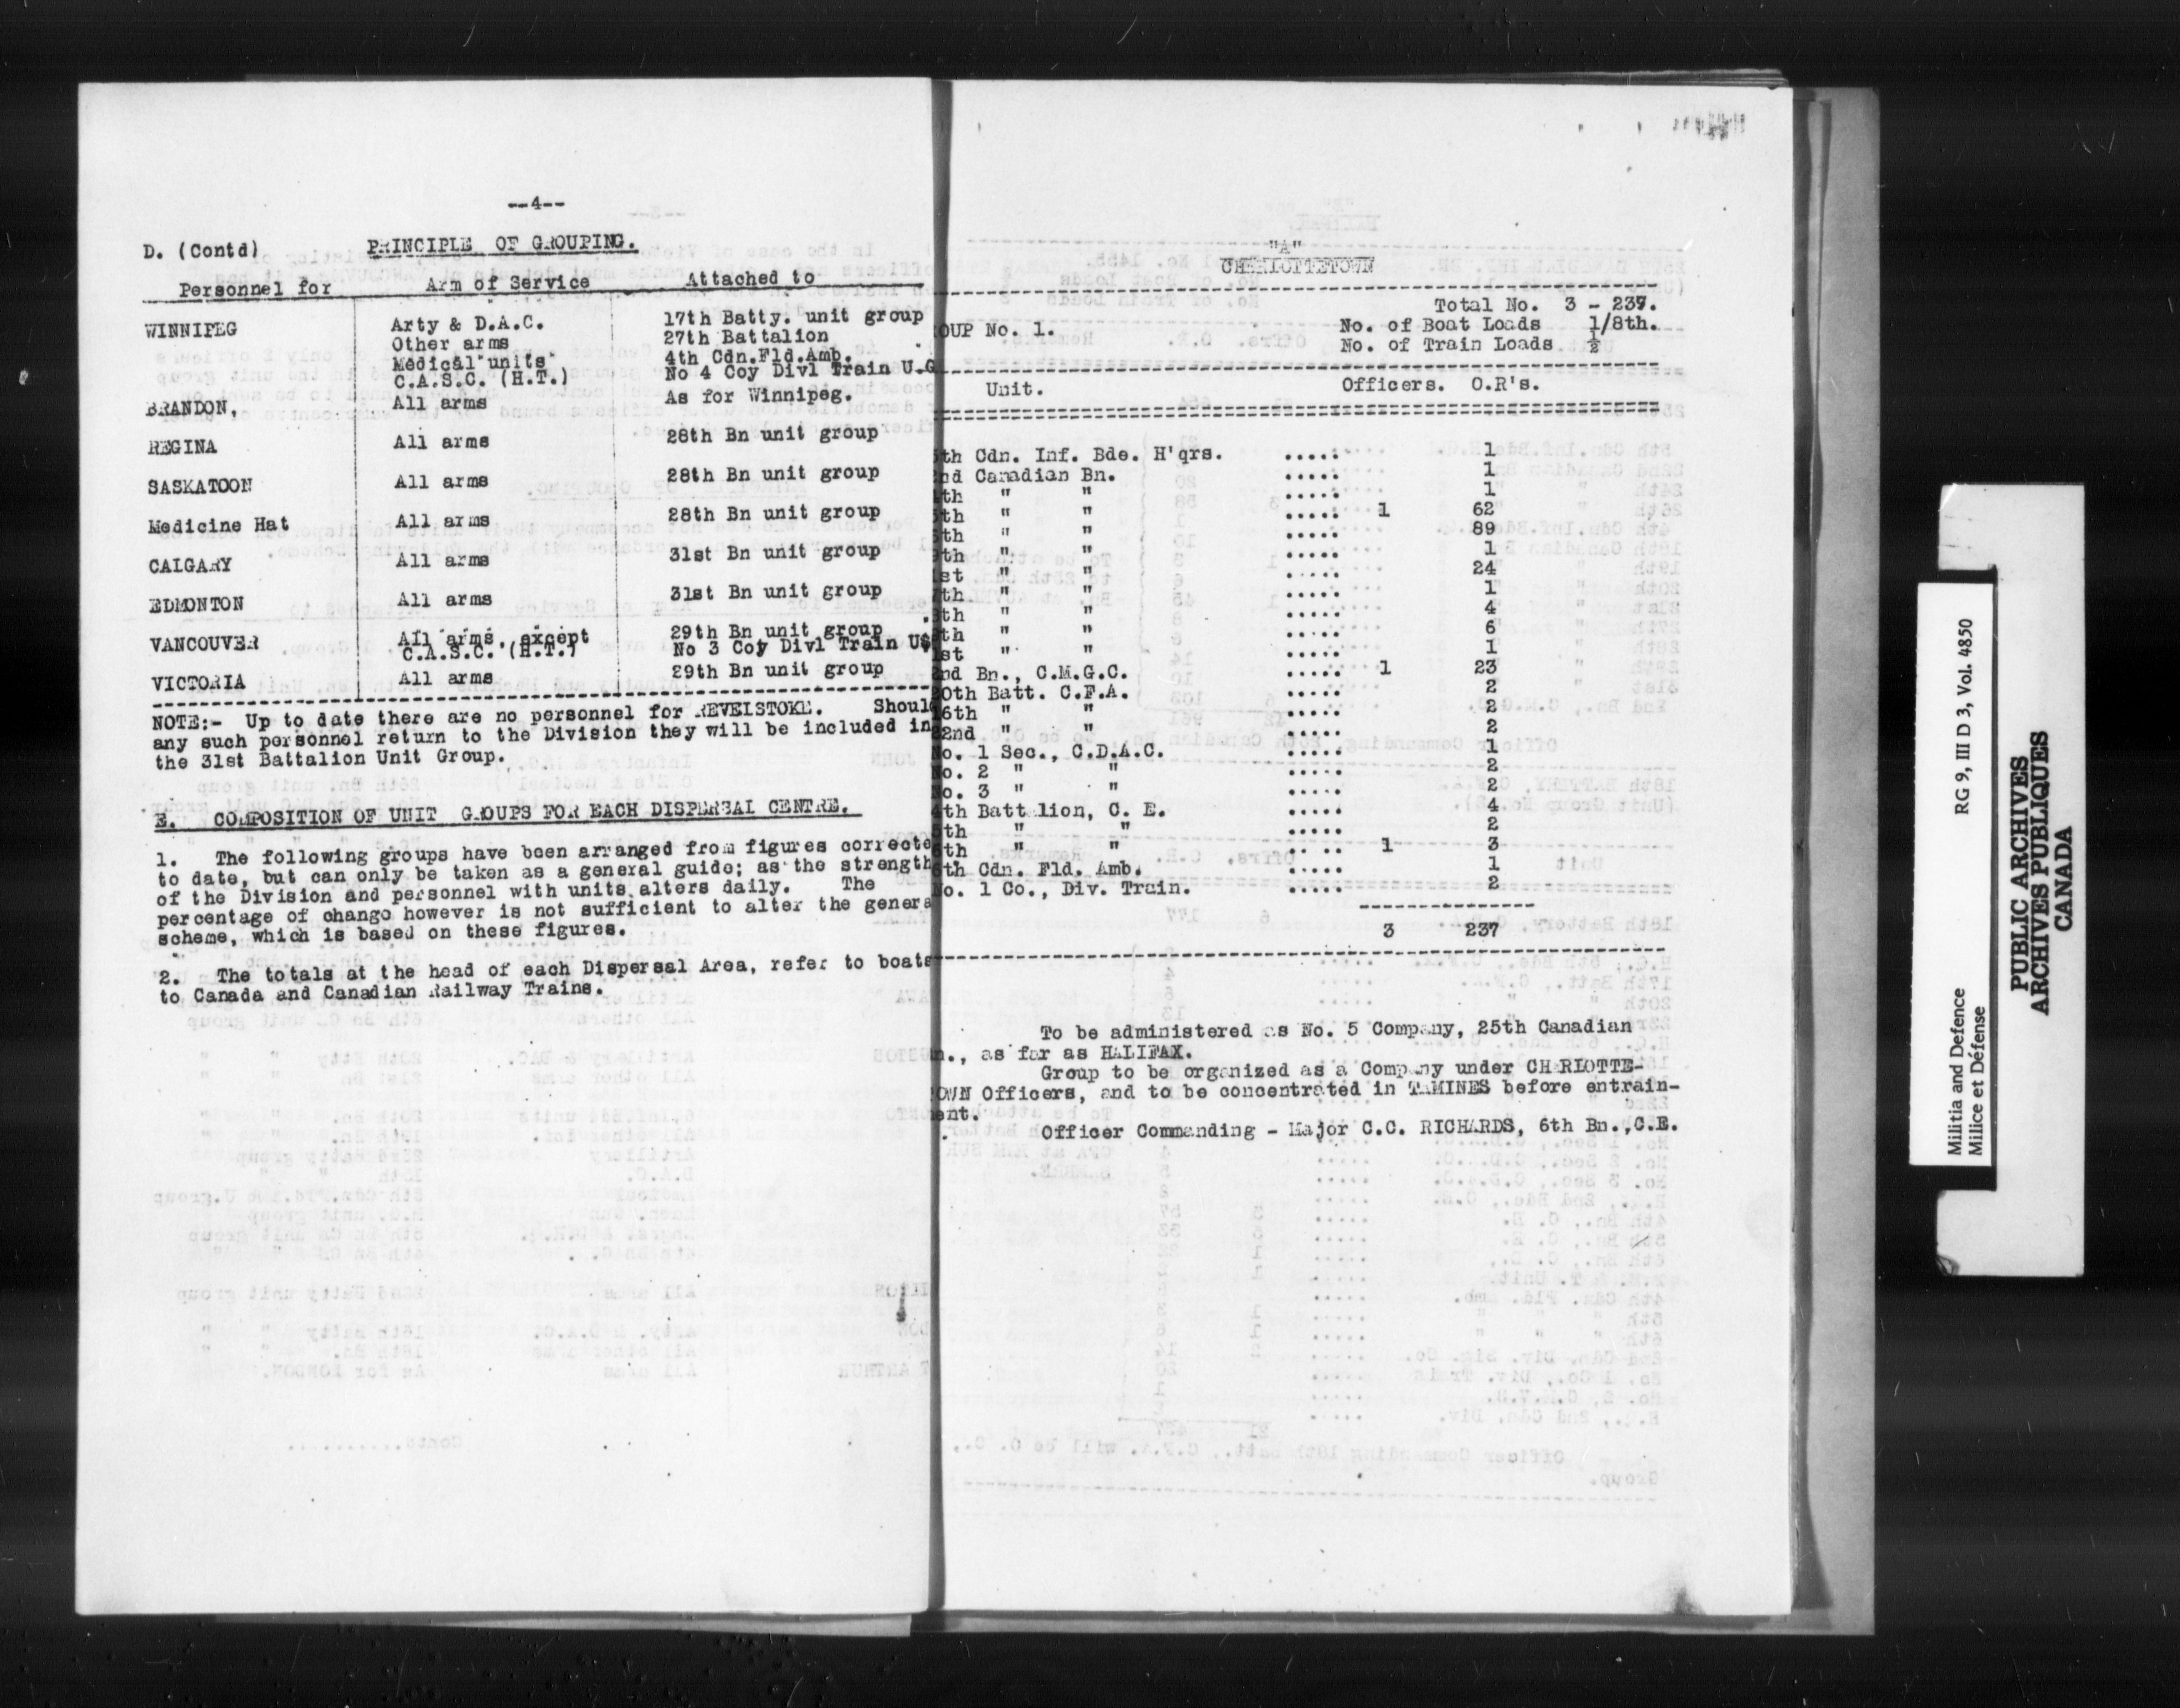 --4--
D. (Contd) PRINCIPLE OF GROUPING.
Personnel for Arm of Service Attached to
WINNIPEG Arty & D.A.C. 17th Batty. unit group
Other arms 27th Battalion
Medical units 4th Cdn.Fld.Amb.
C.A.S.C. (H.T.) No 4 Coy Divl Train U.G
BRANDON, All arms As for Winnipeg.
REGINA All arms 28th Bn unit group
SASKATOON All arms 28th Bn unit group
Medicine Hat All arms 28th Bn unit group
CALGARY All arms 31st Bn unit group
EDMONTON All arms 31st Bn unit group
VANCOUVER All arms except 29th Bn unit group
C.A.S.C. (H.T.) No 3 Coy Divl Train U
VICTORIA All arms 29th Bn unit group
NOTE:- Up to date there are no personnel for REVELSTOKE. Shoul
any such personnel return to the Division they will be included in
the 31st Battalion Unit Group.
E. COMPOSITION OF UNIT GROUPS FOR EACH DISPERSAL CENTRE.
1. The following groups have been arranged from figures correcte
to date, but can only be taken as a general guide; as the strength
of the Division and personnel with units alters daily. The
percentage of change however is not sufficient to alter the genera
scheme, which is based on these figures.
2. The totals at the head of each Dispersal Area, refer to boats
to Canada and Canadian Railway Trains.
"A"
CHARLOTTETOWN
Total No. 3 - 237.
OUP No. 1. No. of Boat Loads 1/8th.
No. of Train Loads ½
Unit. Officers. O.R's.
th Cdn. Inf. Bde. H'qrs. ..... 1
nd Canadian Bn. ..... 1
th " " ..... 1
th " " ..... 1 62
th " " ..... 89
th " " ..... 1
st " " ..... 24
th " " ..... 1
th " " ..... 4
th " " ..... 6
st " " ..... 1
nd Bn., C.M.G.C. ..... 1 23
0th Batt. C.F.A. ..... 2
6th " " ..... 2
2nd " " ..... 2
No. 1 Sec., C.D.A.C. ..... 1
No. 2 " " ..... 2
No. 3 " " ..... 2
4th Battalion, C. E. ..... 4
5th " " ..... 2
6th " " ..... 1 3
6th Cdn. Fld. Amb. ..... 1
No. 1 Co., Div. Train. ..... 2
3 237
To be administered as No. 5 Company, 25th Canadian
n., as far as HALIFAX.
Group to be organized as a Company under CHARLOTTE-
OWN Officers, and to be concentrated in TAMINES before entrain-
ent.
Officer Commanding - Major C.C. RICHARDS, 6th Bn.,C.E.
Militia and Defence RG 9, III D 3, Vol. 4850
Milice et Défense
PUBLIC ARCHIVES
ARCHIVES PUBLIQUES
CANADA